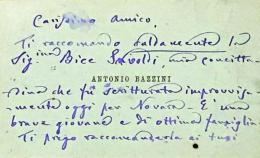 Carissimo Amico,
Ti raccomando caldamente la
Sig.ina Bice Savoldi, mia concitta-
ANTONIO BAZZINI
dina che fu scritturata improvvisa-
mente oggi per Novara - È una
brava giovane e di ottima famiglia
Ti prego raccomandarla ai tuoi